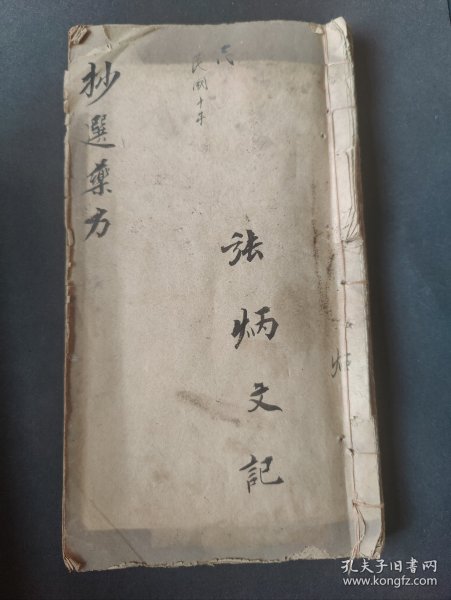 抄選藥方
民
民國十年
張炳文記
炳
孔夫子旧书网
www.kongfz.com